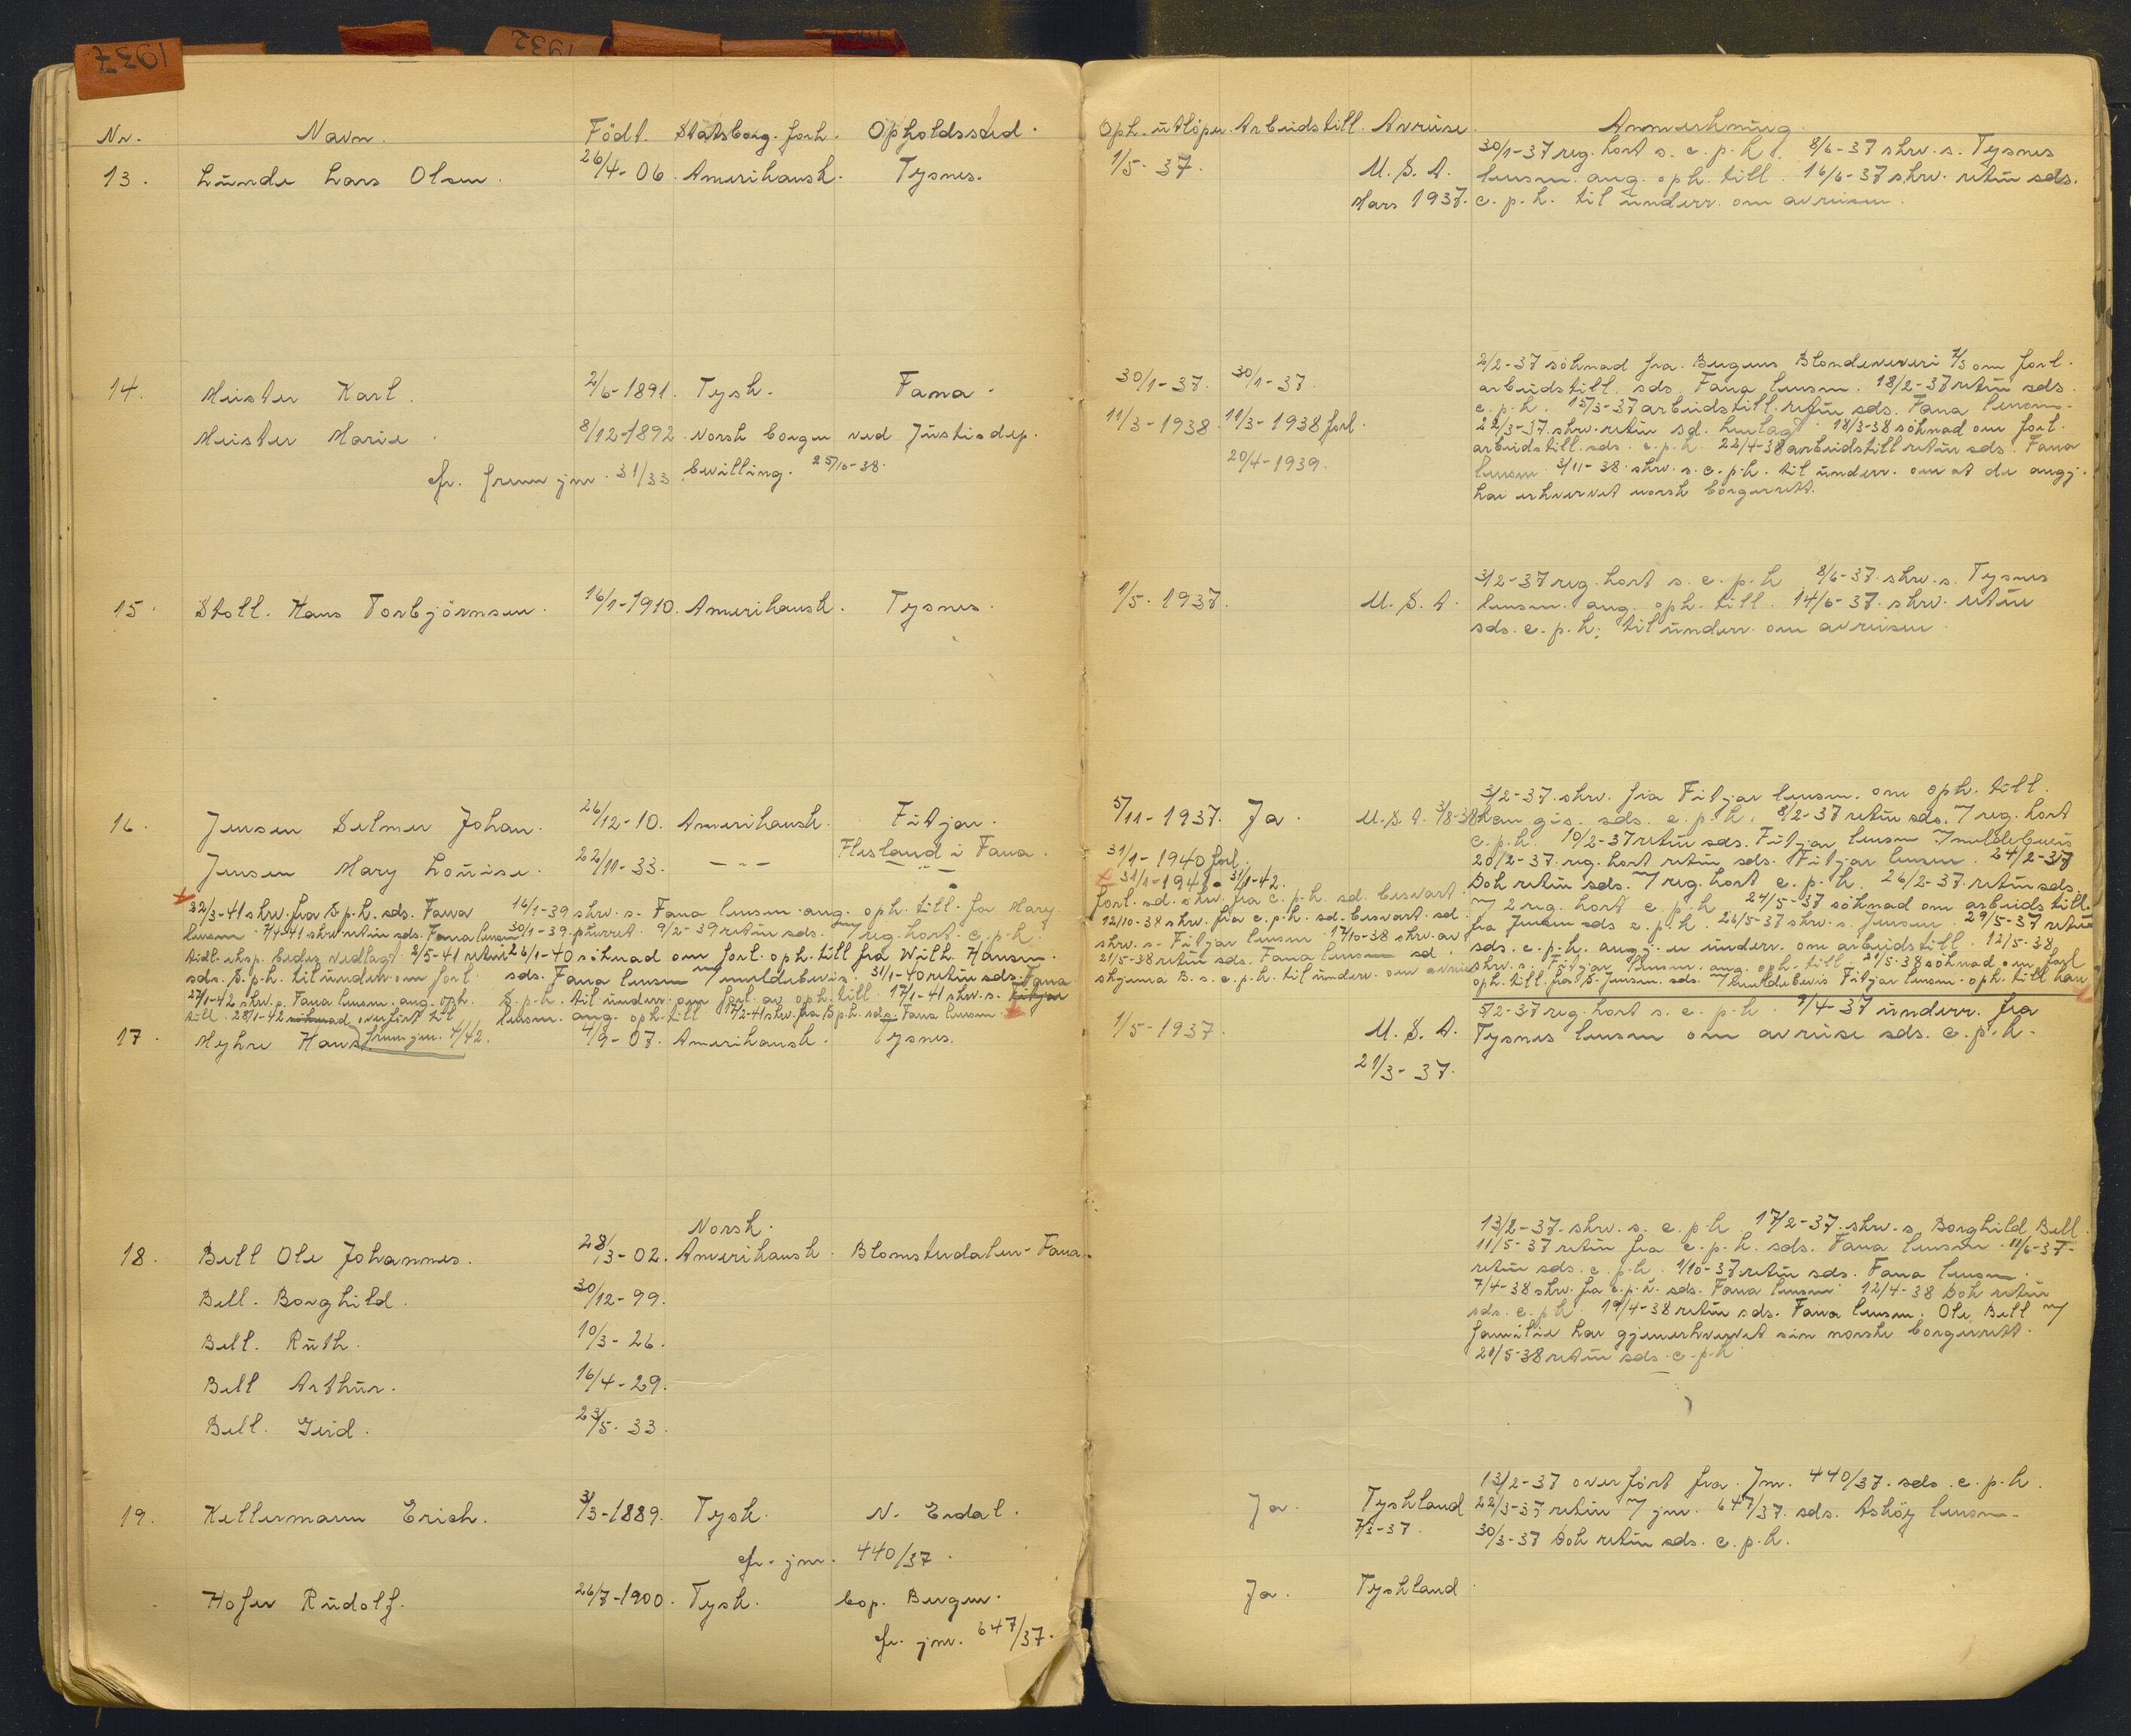 1937
1932
Nr. Navn. Födt. Statsborg. forh. Opholdssted. Oph. utlöper. Arbeidstill. Avreise. Anmerkning.
13. Lunde Lars Olsen. 26/4-06. Amerikansk. Tysnes. 1/5-37. U.S.A. Mars 1937.
30/1-37 reg. kort s. c.p.k. 8/6-37 skrv. s. Tysnes
lensm. ang. oph. till. 16/6-37 skrv. retur sds.
c.p.k. til underr. om avreisen.
14. Meister Karl. 2/6-1891. Tysk. Fana. 30/1-37. 30/1-37.
Meister Marie. 8/12-1892. Norsk borger ved Justisdep. 11/3-1938. 11/3-1938 forl.
cfr. frem jnr. 31/33 bevilling. 25/10-38. 20/4-1939.
2/2-37 söknad fra Bergens Blondeveveri om forl.
arbeidstill. sds. Fana lensm. 18/2-37 retur sds.
c.p.k. 15/3-37 arbeidstill. retur sds. Fana lensm.
22/3-37 skrv. retur sd. henlagt. 18/3-38 söknad om forl.
arbeidstill. sds. c.p.k. 22/4-38 arbeidstill retur sds. Fana
lensm. 3/11-38 skrv. s. c.p.k. til underr. om at de angj.
har erhvervet norsk borgerrett.
15. Stoll. Hans Torbjörnsen. 16/1-1910. Amerikansk. Tysnes. 1/5-1937. U.S.A.
3/2-37 reg. kort s. c.p.k. 8/6-37 skrv. s. Tysnes
lensm. ang. oph. till. 14/6-37 skrv. retur
sds. c.p.k. til underr. om avreisen.
16. Jensen Selmer Johan. 26/12-10. Amerikansk. Fitjar. 5/11-1937. Ja. U.S.A. 3/8-38
Jensen Mary Louise. 22/11-33. -"- Flesland i Fana. 31/1-1940 forl.
-"- 31/1-1941 31/1-42.
3/2-37 skrv. fra Fitjar lensm. om oph. till.
sds. c.p.k. 8/2-37 retur sds. m/ reg. kort
c.p.k. 10/2-37 retur sds. Fitjar lensm m/meldebevis
20/2-37 reg. kort retur sds. Fitjar lensm. 24/2-37
Dok retur sds. m/ reg. kort c.p.k. 26/2-37 retur sds.
m/ 2 reg. kort c.p.k. 24/5-37 söknad om arbeidstill.
fra Jensen sds c.p.k. 26/5-37 skrv. s. Jensen. 29/5-37 retur
sds. c.p.k. angj. er underr. om arbeidstill. 12/5-38
skrv. s. Fitjar lensm. ang. oph. till. 21/5-38 söknad om forl
oph. till. fra S. Jensen. sds. m/ meldebevis Fitjar lensm. oph. till kan
forl. sd. skrv. fra c.p.k. sd. besvart.
12/10-38 skrv. fra c.p.k. sd. besvart. sd.
skrv. s. Fitjar lensm. 17/10-38 skrv. av
21/5-38 retur sds. Fana lensm sd.
skjema B. s. c.p.k. til underr. om avreise
16/1-39 skrv. s. Fana lensm. ang. oph. till. for Mary.
30/1-39 purret. 9/2-39 retur sds. m/ reg. kort. c.p.k.
26/1-40 söknad om forl. oph. till fra Wilh. Hansen.
sds. Fana lensm m/meldebevis. 31/1-40 retur sds. Fana
S.p.k. til underr. om forl. av oph. till. 17/1-41 skrv. s. Fitjar
lensm. ang. oph. till 17/2-41 skrv. fra S.p.k. sds. Fana lensm.
22/3-41 skrv. fra S.p.k. sds. Fana
lensm. 7/4-41 skrv retur sds. Fana lensm
tidl. eksp. bedes vedlagt. 2/5-41 retur
sds. S.p.k. til underr. om forl.
27/1-42 skrv. s. Fana lensm. ang. oph.
till. 28/1-42 söknad overfört til
frem. jnr. 4/42.
17. Myhre Hans 4/9-07. Amerikansk. Tysnes. 1/5-1937. U.S.A. 21/3-37.
5/2-37 reg. kort s. c.p.k. 9/4-37 underr. fra
Tysnes lensm om avreise sds. c.p.k.
Norsk.
18. Bell Ole Johannes. 28/3-02. Amerikansk. Blomsterdalen-Fana.
Bell. Borghild. 30/12-99.
Bell. Ruth. 10/3-26.
Bell Arthur. 16/4-29.
Bell. Gerd. 23/5-33.
13/2-37 skrv. s. c.p.k. 17/2-37 skrv. s. Borghild Bell.
11/5-37 retur fra c.p.k. sds. Fana lensm. 11/6-37-
retur sds. c.p.k. 1/10-37 retur sds. Fana lensm.
7/4-38 skrv. fra c.p.k. sds. Fana lensm. 12/4-38 Dok retur
sds. c.p.k. 19/4-38 retur sds. Fana lensm. Ole Bell m/
familie har gjenerhvervet sin norske borgerrett.
21/5-38 retur sds. c.p.k
19. Kellermann Erich. 3/3-1889. Tysk. N. Erdal. Ja. Tyskland 7/3-37.
cfr. jnr. 440/37.
13/2-37 overfört fra Jnr. 440/37. sds. c.p.k.
22/3-37 retur m/ jnr. 647/37. sds. Asköy lensm.
30/3-37 Dok retur sds. c.p.k.
Hofer Rudolf. 26/7-1900. Tysk. bop. Bergen. Ja. Tyskland.
cfr. jnr. 647/37.